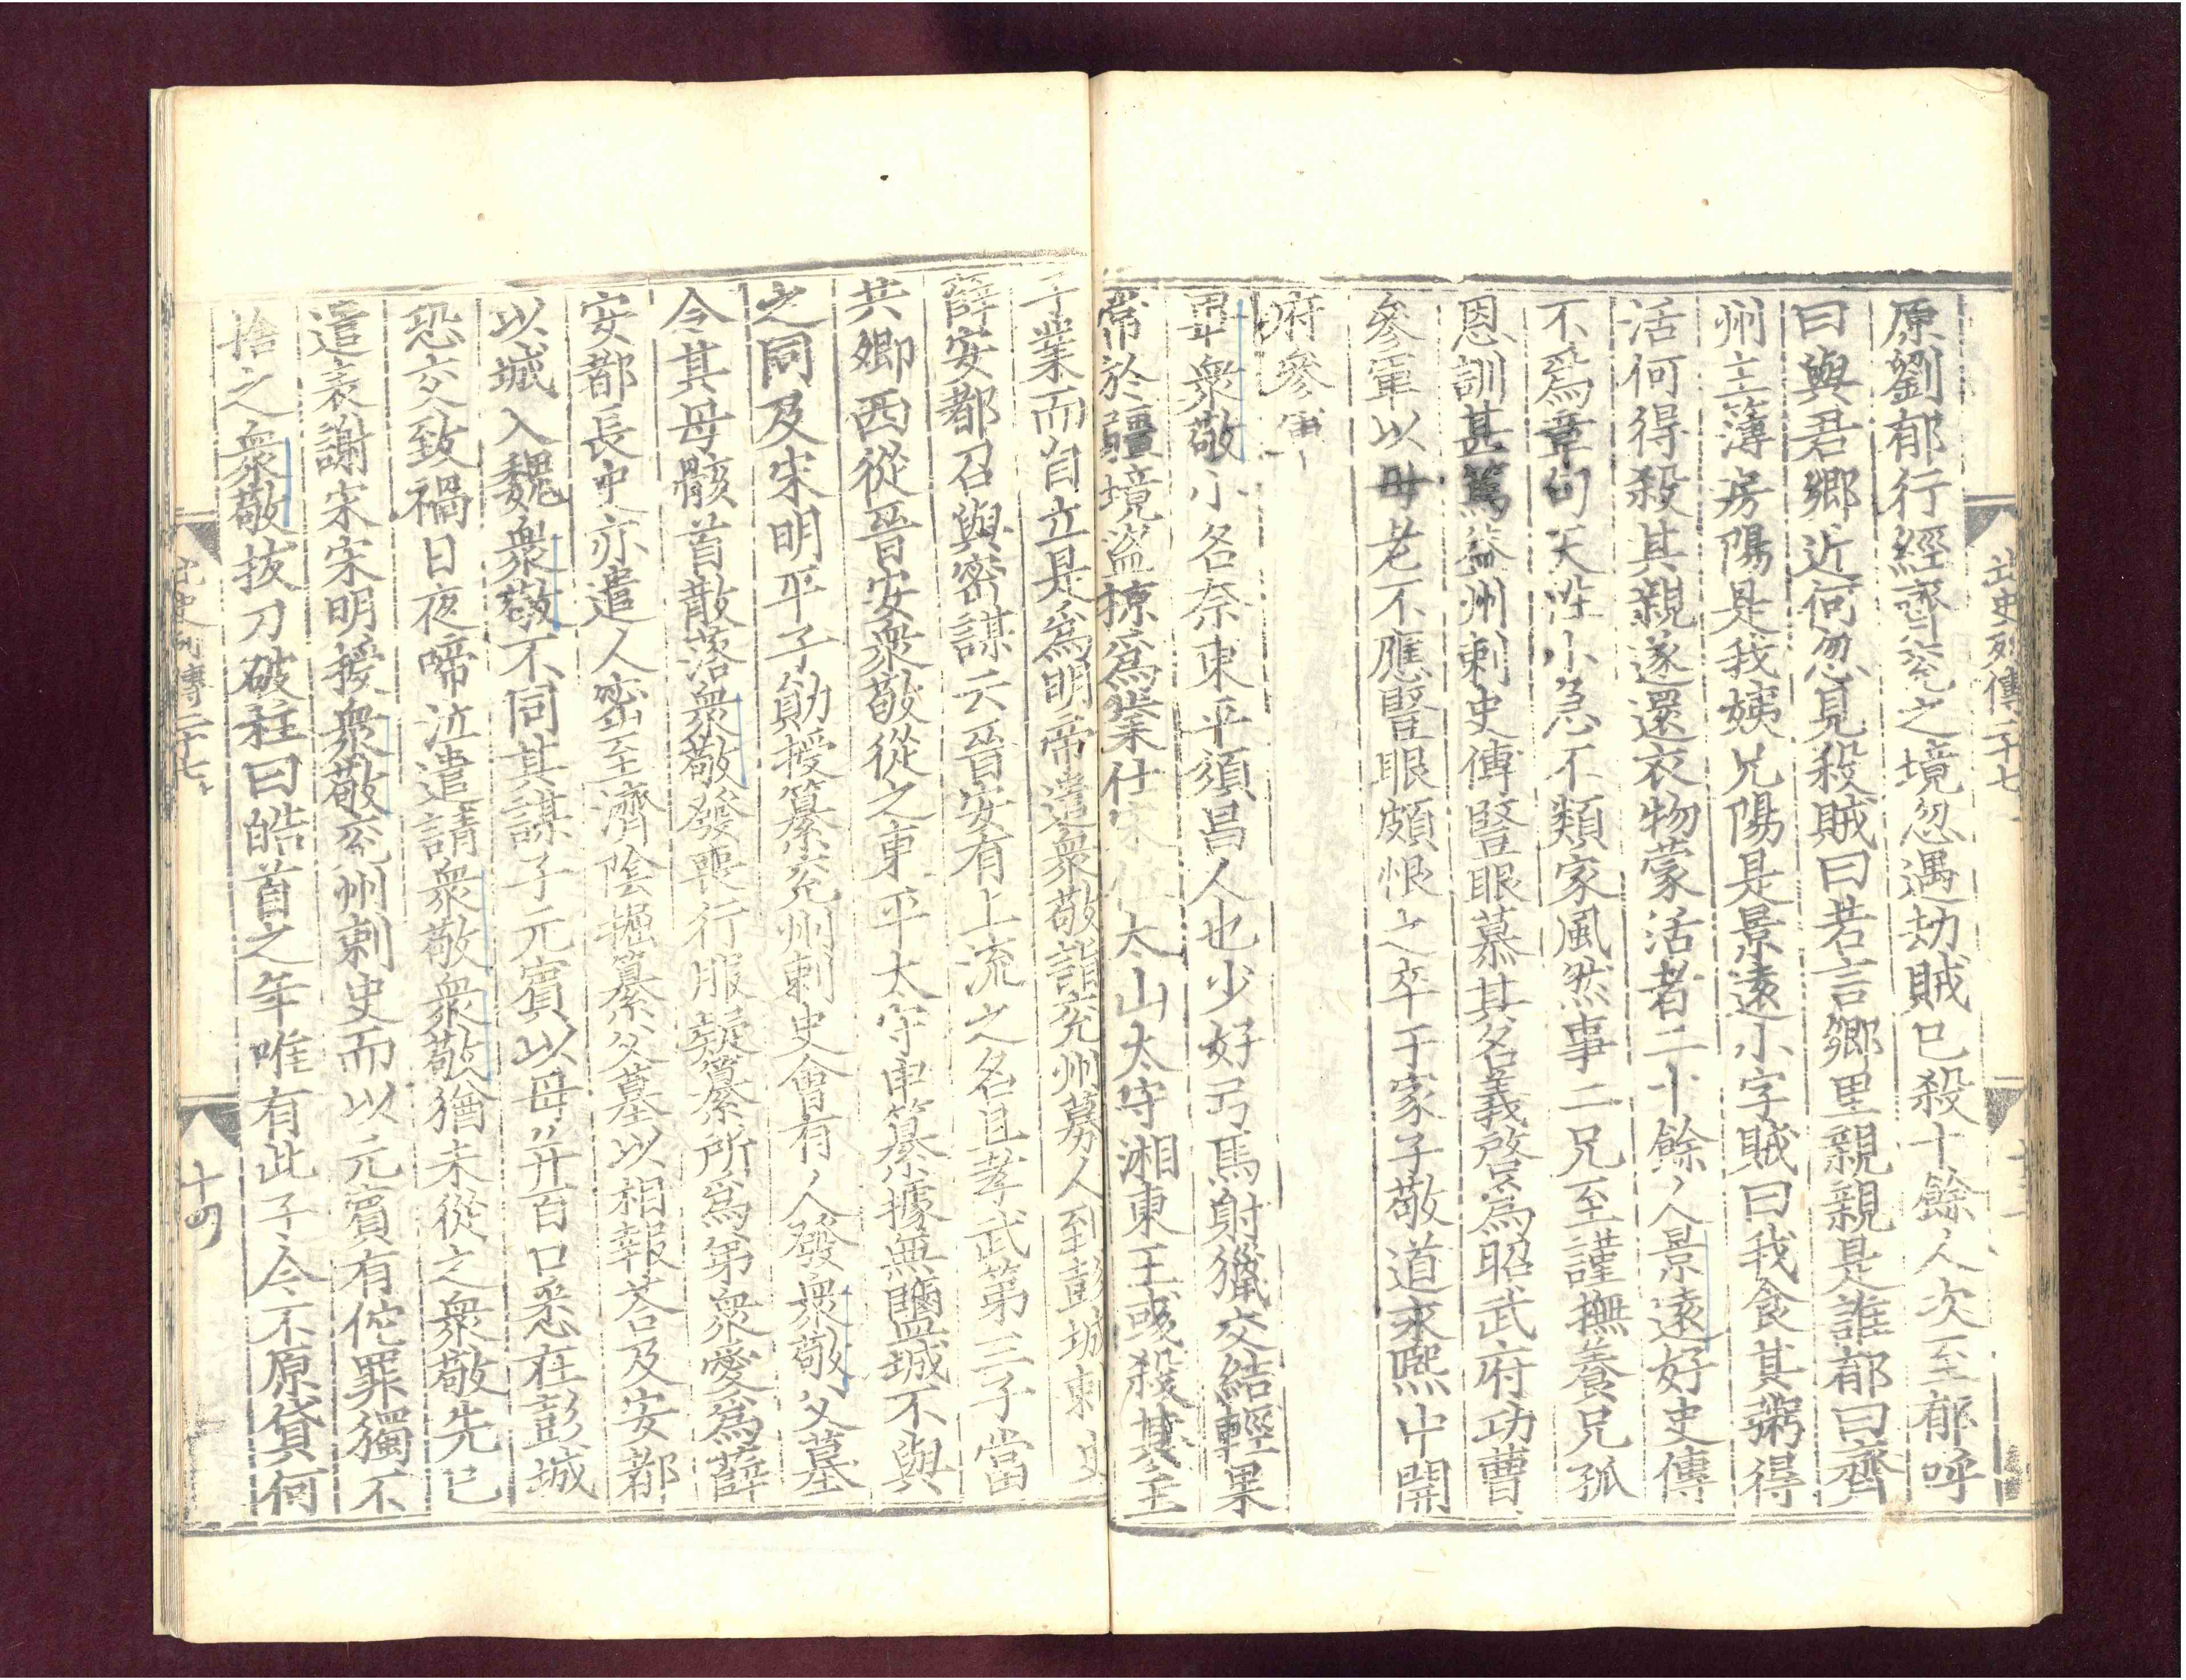 北史列傳二十七
原劉郁行經齊兗之境忽遇劫賊已殺十餘人次至郁呼
曰與君鄉近何忽見殺賊曰若言鄉里親親是誰郁曰齊
州主簿房陽是我姨兄陽是景遠小字賊曰我食其粥得
活何得殺其親遂還衣物蒙活者二十餘人景遠好史傳
不爲章句天性小急不類家風然事二兄至謹撫養兄孤
恩訓甚篤益州刺史傅豎眼慕其名義啓爲昭武府功曹
參軍以母老不應豎眼頗恨之卒于家子敬道永熙中開
府參軍
畢衆敬小名奈東平須昌人也少好弓馬射獵交結輕果
常於疆境盜掠爲業仕宋位太山太守湘東王彧殺其主
子業而自立是爲明帝遣衆敬詣兗州募人到彭城刺史
薛安都召與密謀云晉安有上流之名且孝武第三子當
共卿西從晉安衆敬從之東平太守申纂據無鹽城不與
之同及宋明平子勛授纂兗州刺史會有人發衆敬父墓
令其母骸首散落衆敬發喪行服疑纂所爲弟衆愛爲薛
安都長史亦遣人密至濟陰掘纂父墓以相報荅及安都
以城入魏衆敬不同其謀子元賓以母并百口悉在彭城
恐交致禍日夜啼泣遣請衆敬衆敬猶未從之衆敬先已
遣表謝宋宋明授衆敬兗州刺史而以元賓有佗罪獨不
捨之衆敬拔刀破柱曰皓首之年唯有此子今不原貸何
北史列傳二十七
十四